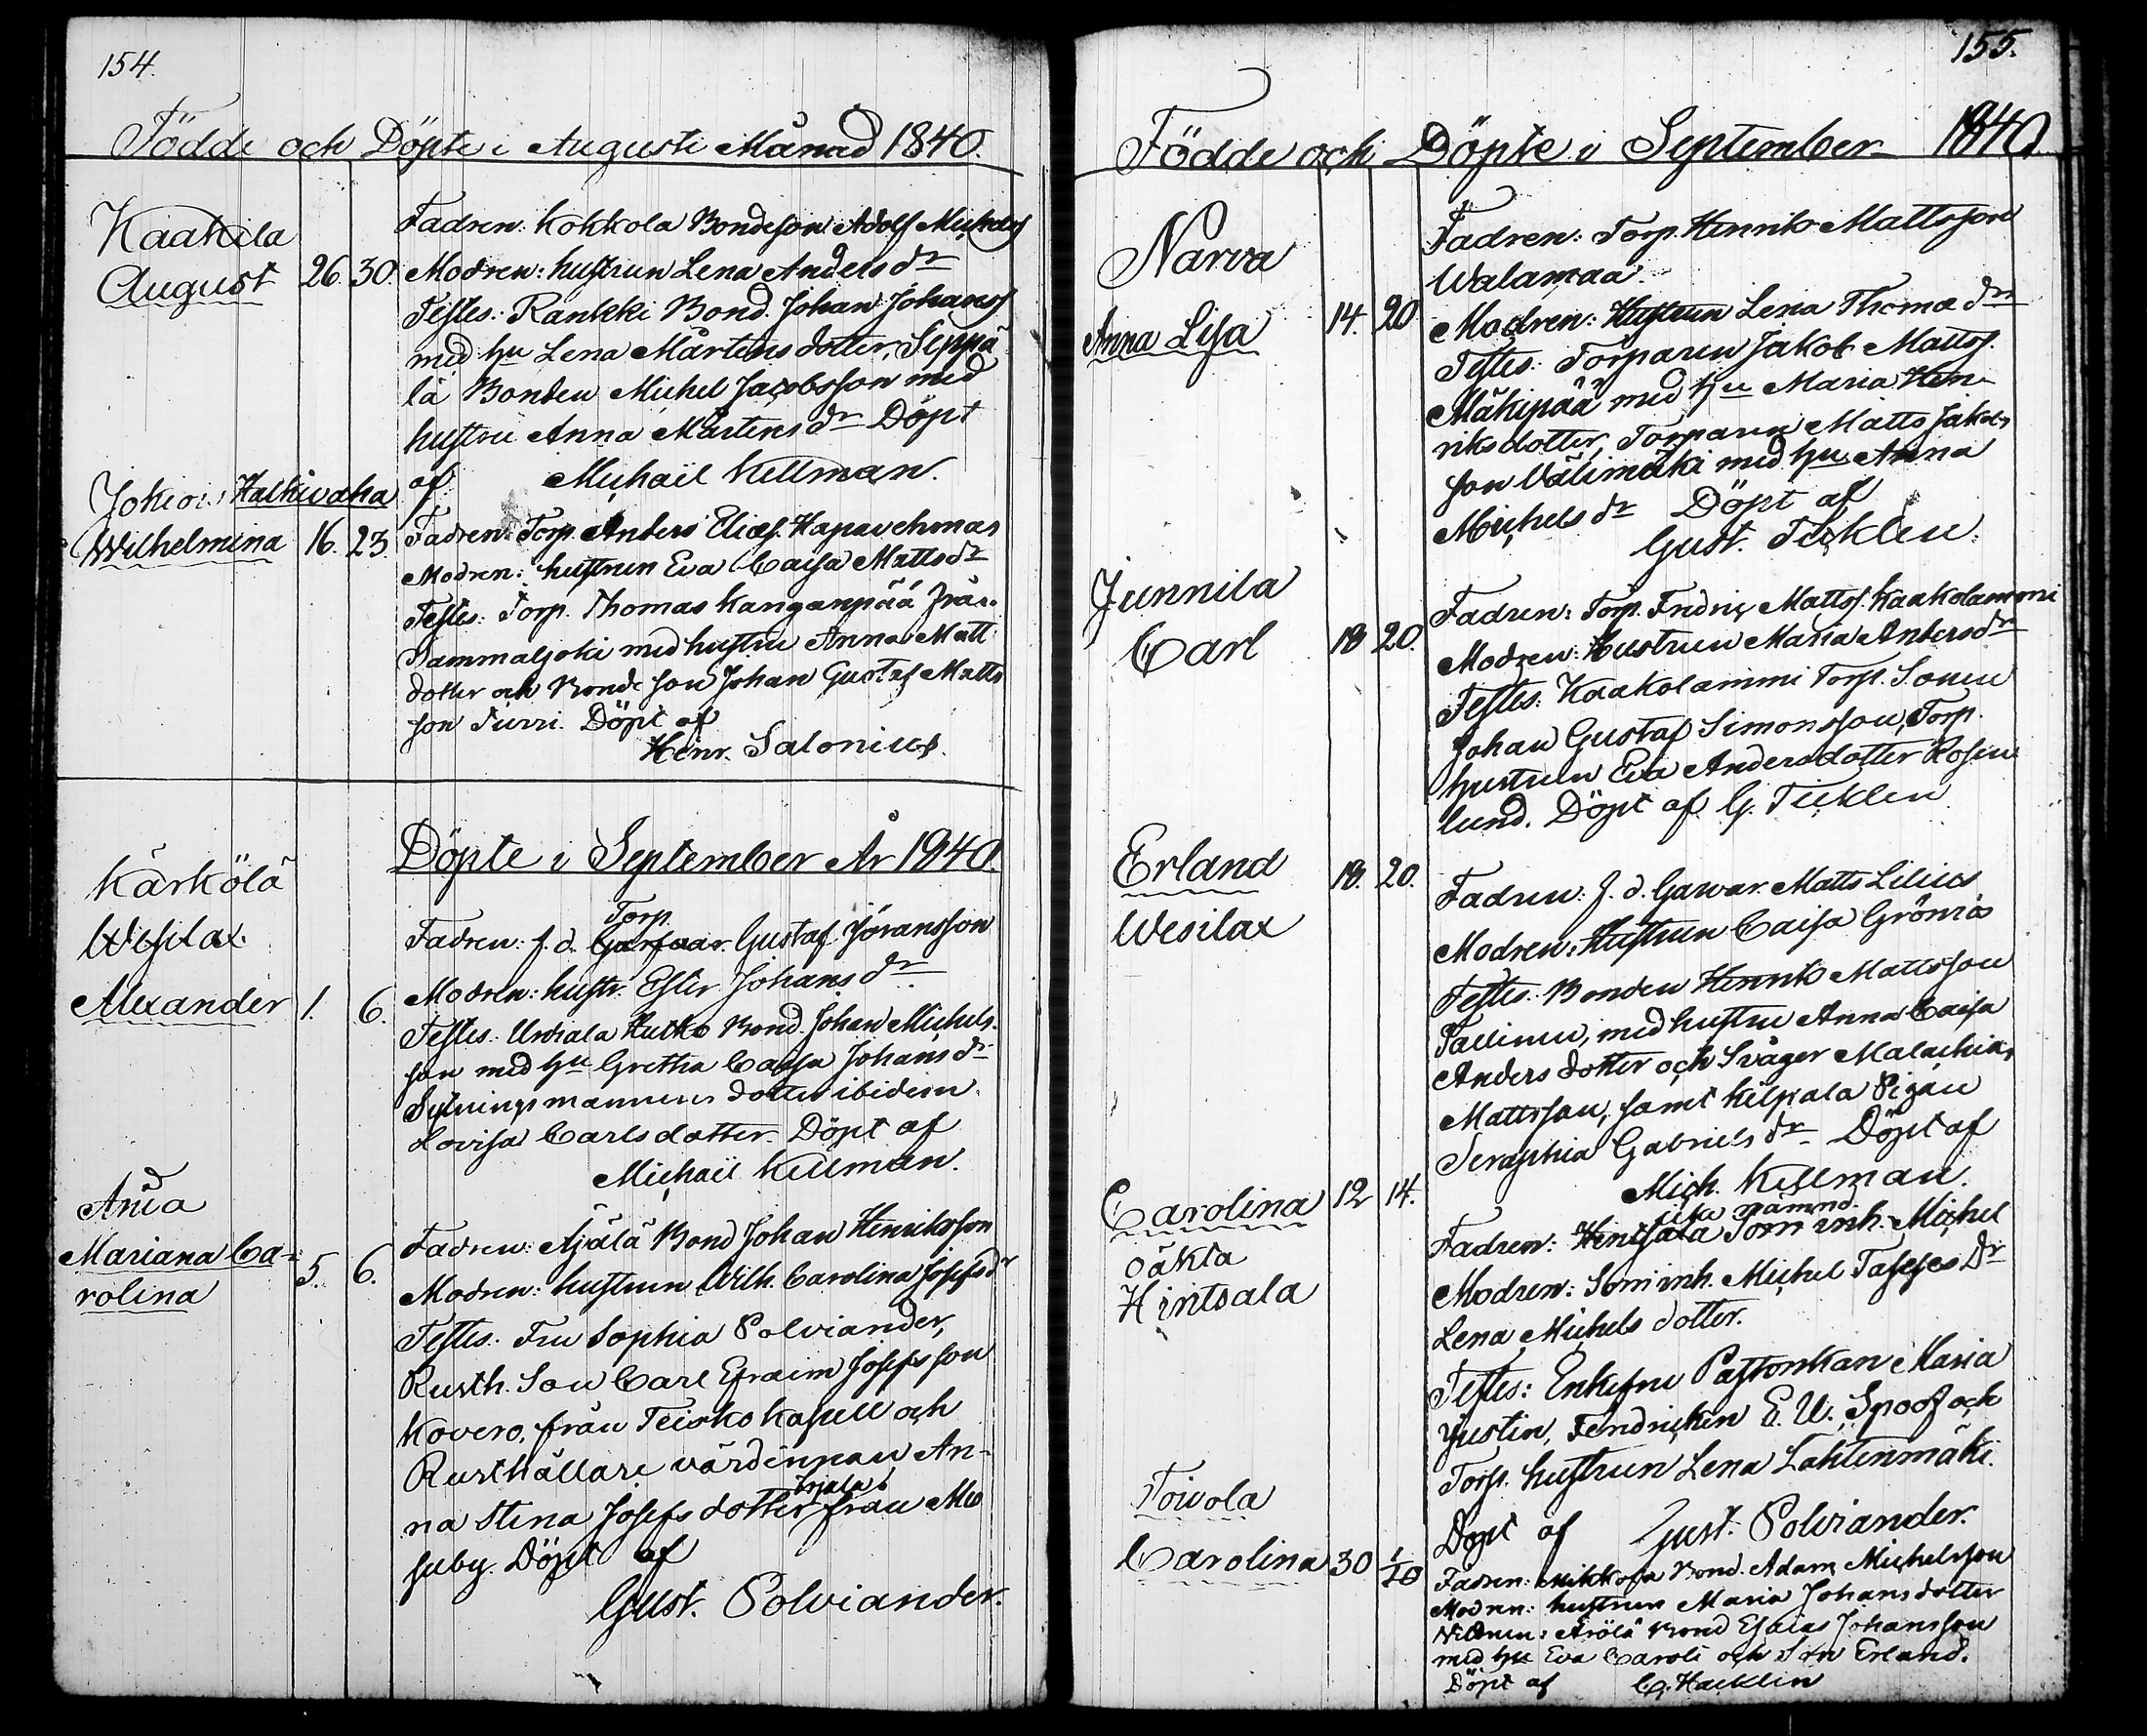 154.
Födde och Döpte i Augusti Månad 1840.
Kaakila
August 26 30.
Fadren: Kokkola Bondeson Adolf Michelss
Modren: hustrun Lena Anders dr
Testes: Ränkki Bond. Johan Johanss
med hu Lena Mårtens dotter, Seppä
lä Bonden Michel Jacobsson med
hustru Anna Mårtens dr Döpt
af Michaël Kellman.
Jokiois Halkivaha
Wilhelmina 16. 23.
Fadren: Torp. Anders Eliæs. Hapavehmas
Modren: hustrun Eva Caisa Matts dr
Testes: Torp. Thomas Kanganpää från
Sammaljoki med hustru Anna Matt
dotter och Bonde son Johan Gustaf Matts
son Turri. Döpt af
Henr. Salonius.
Döpte i September År 1840.
Kärkölä
Wesilax.
Alexander 1. 6.
Torp.
Fadren: f. d. Gustaf Jöransson
Modren: hustr. Ester Johans dr
Testes: Urdiala Hutko Bond. Johan Michels
son med hu Gretha Caisa Johans dr
Sytningsmannens dotter ibidem
Lovisa Carlsdotter. Döpt af
Michaël Kellman.
Ania
Mariana Ca-
rolina 5. 6.
Fadren: Äjälä Bond Johan Henriksson
Modren: hustrun Wilh. Carolina Josefs dr
Testes: Fru Sophia Polviander,
Rusth. Son Carl Efraim Josefsson
Kovero, från Teisko Kapell och
Rusthållare värdinnan An-
na Stina Josefs dotter från Me
suby. Döpt af
Gust. Polviander.
155.
Födde och Döpte i September 1840
Narva
Anna Lisa 14. 20
Fadren: Torp. Henrik Mattsson
Walamaa.
Modren: Hustrun Lena Thomæ dr
Testes: Torparen Jakob Mattss.
Mäkipää med hu Maria Hen-
riksdotter, Torparen Matts Jakobs
son Välimäki med hu Anna
Michels dr Döpt af
Gust. Ticklen.
Junnila
Carl 18 20.
Fadren: Torp. Fredric Mattss. Kaakolammi
Modren: Hustrun Maria Anders dr
Testes: Kaakolammi Torp. Sonen
Johan Gustaf Simonsson, Torp.
hustrun Eva Andersdotter Rosen
lund. Döpt af G. Ticklen
Erland 18. 20.
Wesilax
Fadren: f. d. Gawar. Matts Lilius
Modren: Hustrun Caisa Grönros
Testes: Bonden Henrik Mattsson
Tallinen, med hustru Anna Caisa
Anders dotter och Svåger Malachias
Mattsson, samt Kilpiala Pigan
Seraphia Gabriels dr Döpt af
Mich. Kellman.
Carolina 12 14.
oäkta
Hintsala
nämnd.
Fadren: Hintsala Som inh. Michel
Modren: Som inh. Michel Dr
Lena Michels dotter.
Testes: Enkefru Pastorskan Maria
Justin, Fendricken E. U. Spoof och
Torp. hustrun Lena Lahtinmäki.
Döpt af Gust. Polviander.
Toivola
Carolina 30 1/10
Fadren: Mikkola Bond. Adam Michelsson
Modren: hustrun Maria Johansdotter
Vittnen: Äiölä Bond Esaias Johansson
med hu Eva Caroli och Son Erland.
Döpt af G. Hacklin